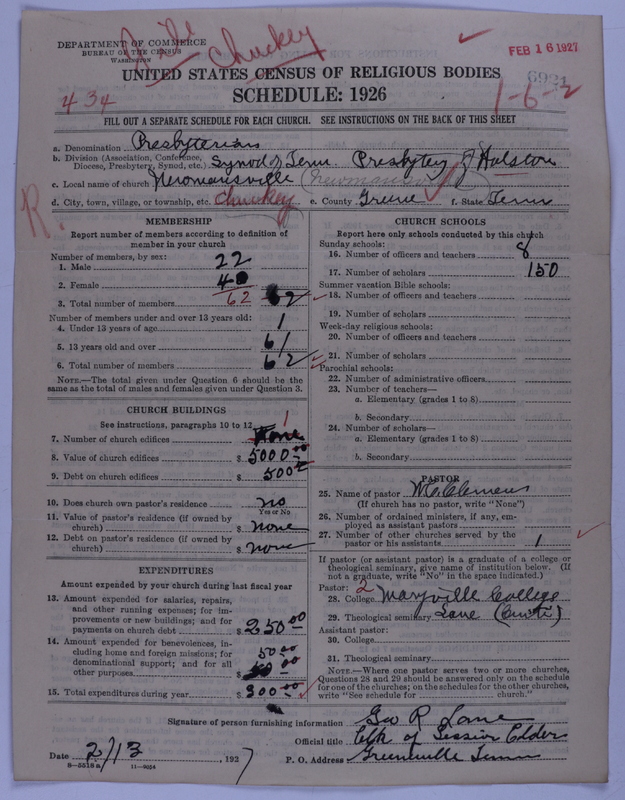 DEPARTMENT OF COMMERCE
BUREAU OF THE CENSUS
WASHINGTON
Chuckey
FEB 16 1927
UNITED STATES CENSUS OF RELIGIOUS BODIES
SCHEDULE: 1926
434
1-6-2
FILL OUT A SEPARATE SCHEDULE FOR EACH CHURCH. SEE INSTRUCTIONS ON THE BACK OF THIS SHEET
a. Denomination Presbyterian
b. Division (Association, Conference, Diocese, Presbytery, Synod, etc.) Synod of Tenn Presbytery of Holston
c. Local name of church
d. City, town, village, or township, etc. Chuckey e. County Greene f. State Tenn
R.
MEMBERSHIP
Report number of members according to definition of member in your church
Number of members, by sex:
1. Male 22
2. Female 40
3. Total number of members 62 62
Number of members under and over 13 years old:
4. Under 13 years of age 1
5. 13 years old and over 61
6. Total number of members 62
NOTE.—The total given under Question 6 should be the same as the total of males and females given under Question 3.
CHURCH BUILDINGS
See instructions, paragraphs 10 to 12
7. Number of church edifices 1
8. Value of church edifices $ 5000.00
9. Debt on church edifices $ 500
10. Does church own pastor's residence no
Yes or No
11. Value of pastor's residence (if owned by church) $ none
12. Debt on pastor's residence (if owned by church) $ none
EXPENDITURES
Amount expended by your church during last fiscal year
13. Amount expended for salaries, repairs, and other running expenses; for improvements or new buildings; and for payments on church debt $ 250.00
14. Amount expended for benevolences, including home and foreign missions; for denominational support; and for all other purposes $ 50.00
15. Total expenditures during year $ 300.00
CHURCH SCHOOLS
Report here only schools conducted by this church
Sunday schools:
16. Number of officers and teachers 8
17. Number of scholars 150
Summer vacation Bible schools:
18. Number of officers and teachers
19. Number of scholars
Week-day religious schools:
20. Number of officers and teachers
21. Number of scholars
Parochial schools:
22. Number of administrative officers
23. Number of teachers—
a. Elementary (grades 1 to 8)
b. Secondary
24. Number of scholars—
a. Elementary (grades 1 to 8)
b. Secondary
PASTOR
25. Name of pastor
(If church has no pastor, write "None")
26. Number of ordained ministers, if any, employed as assistant pastors
27. Number of other churches served by the pastor or his assistants 1
If pastor (or assistant pastor) is a graduate of a college or theological seminary, give name of institution below. (If not a graduate, write "No" in the space indicated.)
Pastor: 2
28. College Maryville College
29. Theological seminary Lane
Assistant pastor:
30. College
31. Theological seminary
NOTE.—Where one pastor serves two or more churches, Questions 28 and 29 should be answered only on the schedule for one of the churches; on the schedules for the other churches, write "See schedule for church."
Signature of person furnishing information Geo R Lane
Official title Clk of Session Elder
Date 2/13, 1927 P. O. Address Greeneville Tenn
8—5518a 11—9054